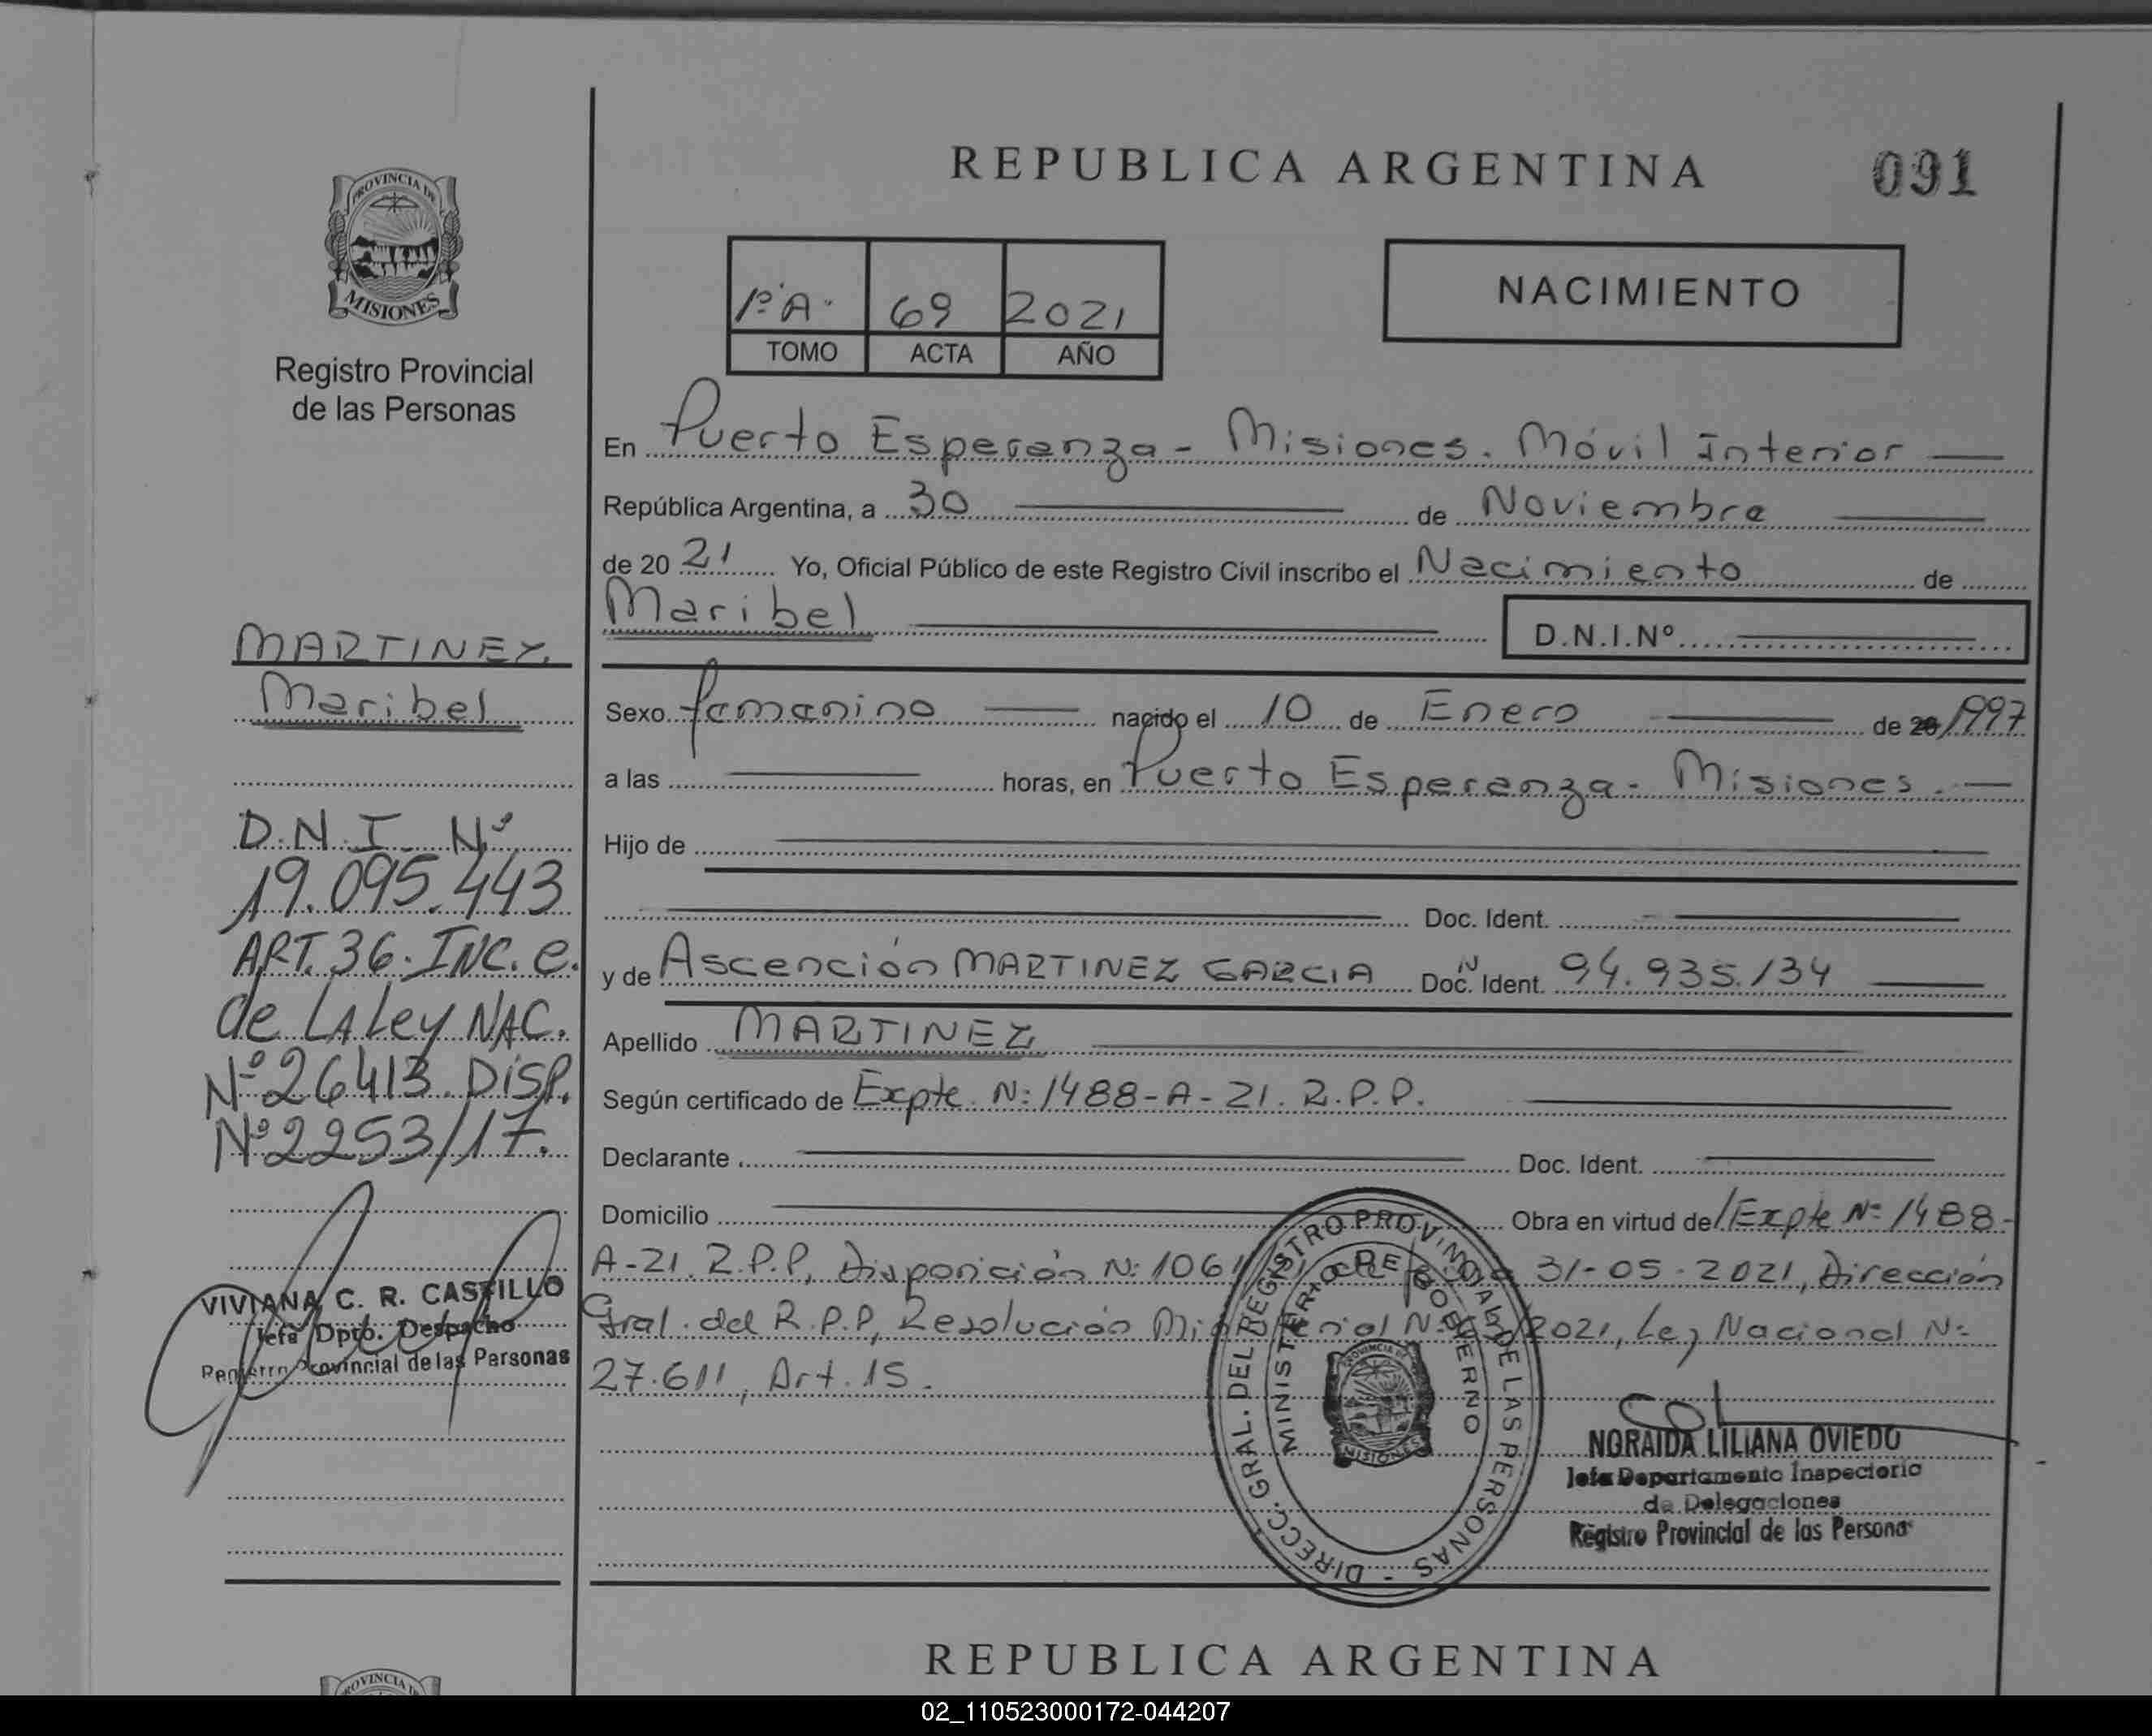 PROVINCIA DE
MISIONES
Registro Provincial
de las Personas
MARTINEZ
Maribel
D.N.I. Nº
19.095.443
ART. 36. INC. e.
de LA Ley NAC.
Nº 26413. DISP.
Nº 2253/17.
VIVIANA C. R. CASTILLO
Jefa Dpto. Despacho
Registro Provincial de las Personas
REPUBLICA ARGENTINA
091
1º A.
69
2021
TOMO
ACTA
AÑO
NACIMIENTO
En Puerto Esperanza - Misiones. Móvil Interior
República Argentina, a 30 de Noviembre
de 20 21 Yo, Oficial Público de este Registro Civil inscribo el Nacimiento de
Maribel D.N.I.Nº
Sexo femenino nacido el 10 de Enero de 20 1997
a las horas, en Puerto Esperanza - Misiones.
Hijo de
Doc. Ident.
y de Ascención MARTINEZ GARCIA Doc. Ident. Nº 94.935.134
Apellido MARTINEZ
Según certificado de Expte. N: 1488-A-21. R.P.P.
Declarante Doc. Ident.
Domicilio Obra en virtud de Expte Nº 1488-
A-21. R.P.P, Disposición N: 1061 de fecha 31-05-2021, Dirección
Gral. del R.P.P, Resolución Ministerial /2021, Ley Nacional N:
27.611, Art. 15.
DIRECC. GRAL. DEL REGISTRO PROVINCIAL DE LAS PERSONAS -
MINISTERIO DE GOBIERNO
PROVINCIA DE
MISIONES
NORAIDA LILIANA OVIEDO
Jefa Departamento Inspectorio
de Delegaciones
Registro Provincial de las Personas
REPUBLICA ARGENTINA
PROVINCIA
02_110523000172-044207